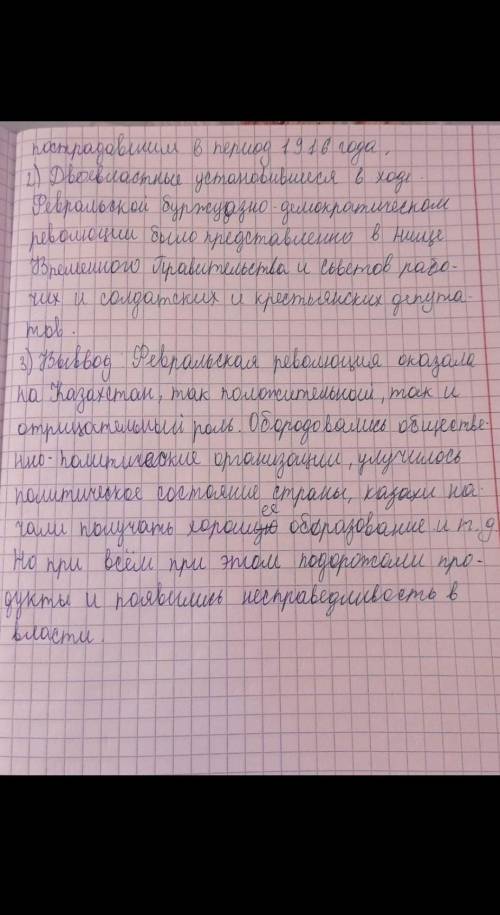 пострадавшим в период 1916 года.
2) Двоевластные установившиеся в ходе
Февральской буржудзно-демократическом
революции было представленно в лице
Временного Правительства и советов рабо-
чих и солдатских и крестьянских депута-
тов.
3) Выввод Февральская революция оказала
на Казахстан, так положительный, так и
отрицательный роль. Обородовались обществе-
нно-политические организации, улучилось
политическое состояние страны, казахи на-
чали получать хорошее образование и т.д
Но при всём при этом подорожали про-
дукты и появились несправедливость в
власти.